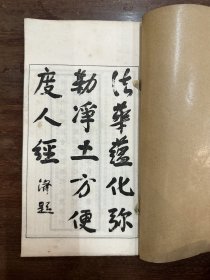 法華蘊化弥
勒淨土方便
度人經
海題